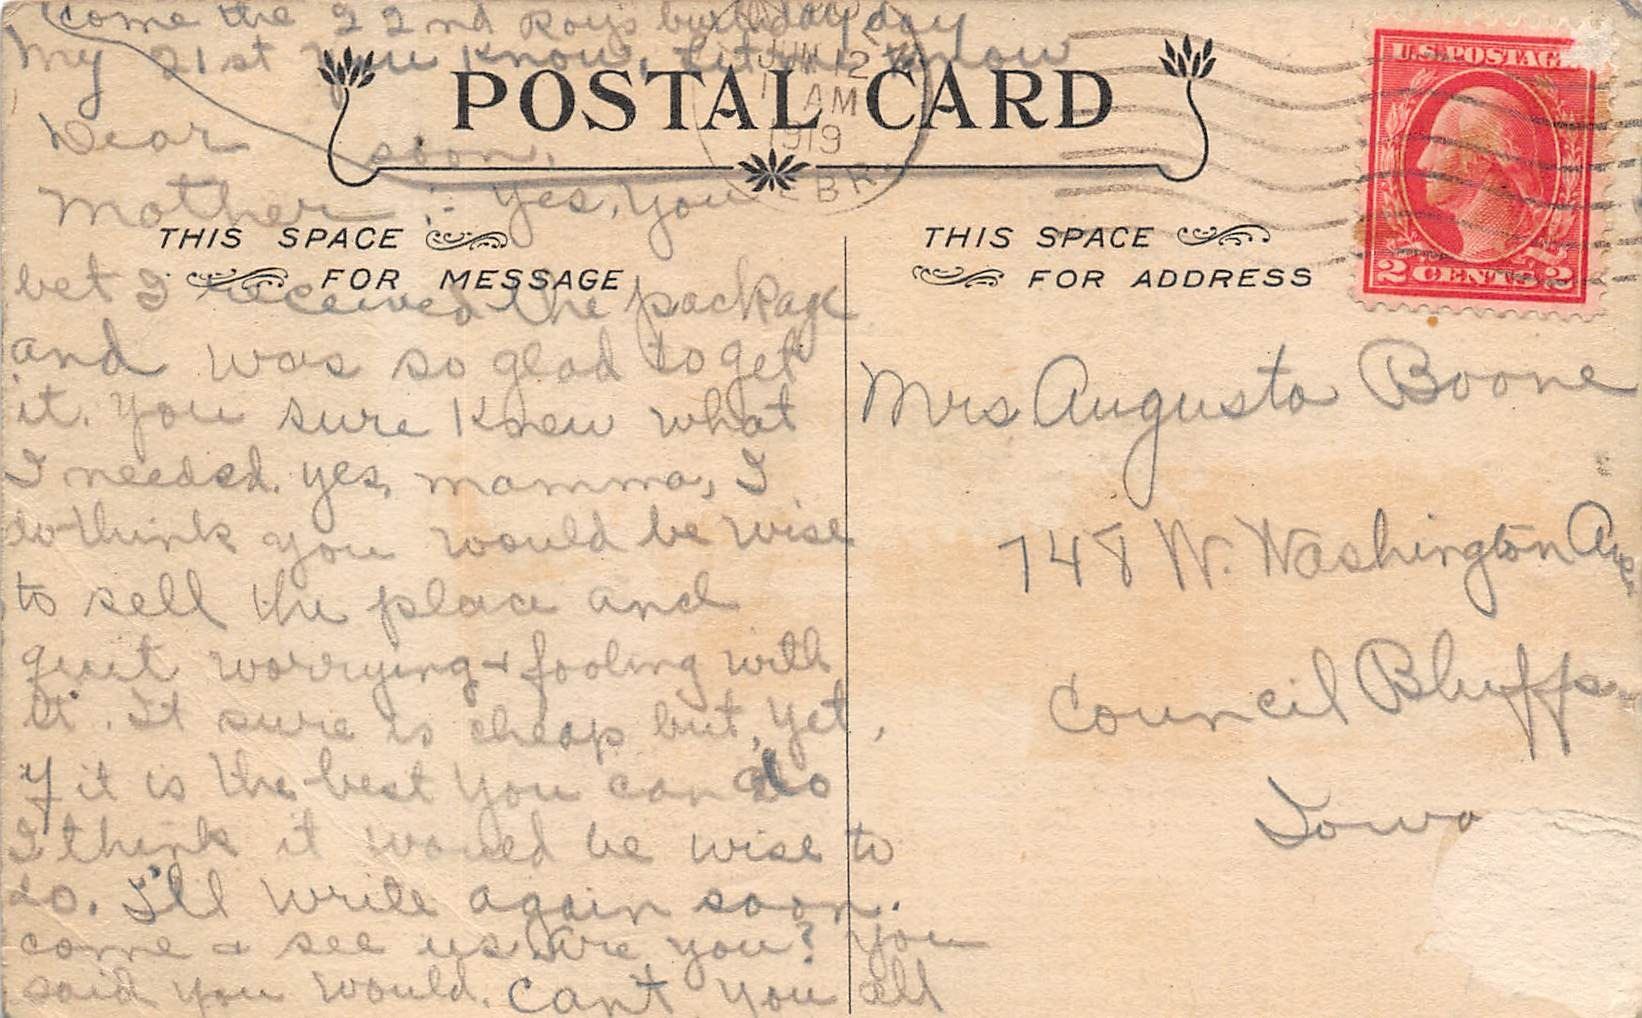 come the 22nd Roy's birthday day
My 21st you know. Let me know
soon.
POSTAL CARD
JUN 12
AM
1919
EBR
U.S. POSTAGE
2 CENTS 2
THIS SPACE
FOR MESSAGE
Dear
Mother :- Yes, you
bet I received the package
and was so glad to get
it. You sure knew what
I needed. Yes, mamma, I
do think you would be wise
to sell the place and
quit worrying & fooling with
it. It sure is cheap but, yet,
if it is the best you can do
I think it would be wise to
do. I'll write again soon.
come & see us. Are you? You
said you would. Can't you all
THIS SPACE
FOR ADDRESS
Mrs Augusta Boone
748 W. Washington Ave
Council Bluffs
Iowa